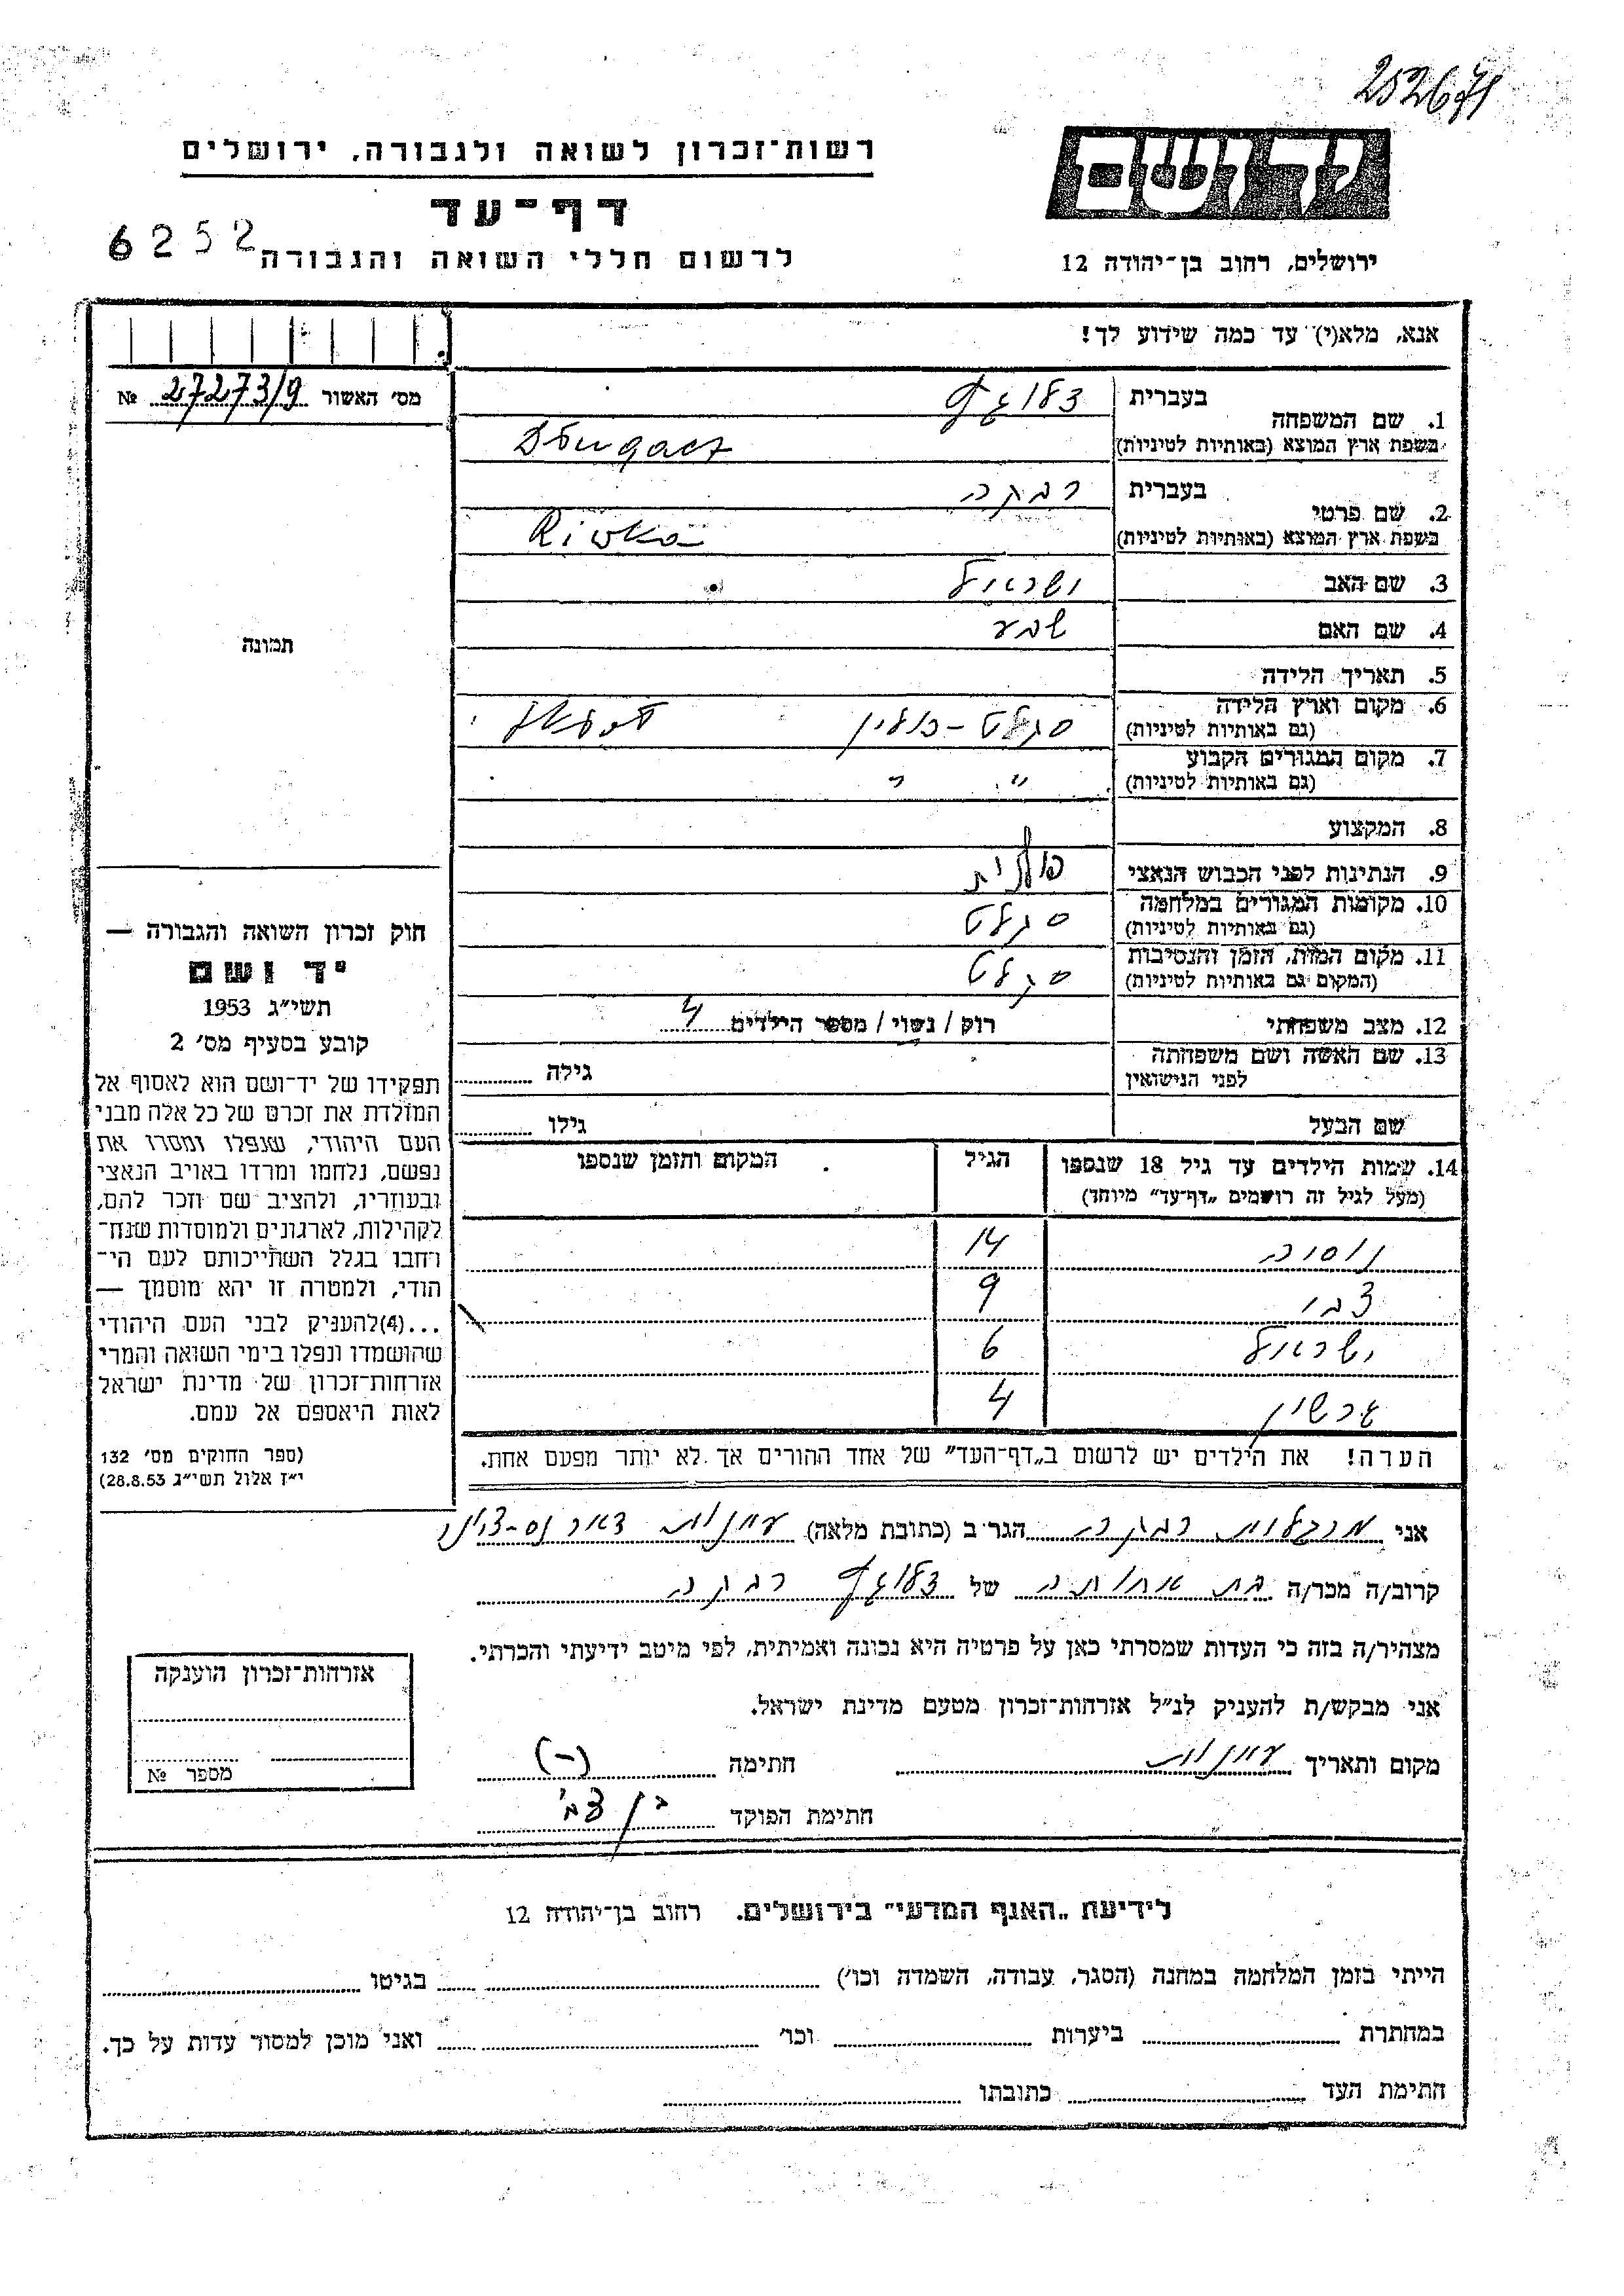 252671
רשות־זכרון לשואה ולגבורה, ירושלים
דף־עד
6252
לרשום חללי השואה והגבורה
יד ושם
ירושלים, רחוב בן־יהודה 12
אנא, מלא(י) עד כמה שידוע לך!
מס׳ האשור 27273/9 №
תמונה
1. שם המשפחה
בעברית
בשפת ארץ המוצא (באותיות לטיניות)
2. שם פרטי
בעברית רבקה
בשפת ארץ המוצא (באותיות לטיניות) Riwka
3. שם האב ישראל
4. שם האם שבע
5. תאריך הלידה
6. מקום וארץ הלידה
(גם באותיות לטיניות) סקלט - פולין
7. מקום המגורים הקבוע
(גם באותיות לטיניות) " "
8. המקצוע
9. הנתינות לפני הכבוש הנאצי פולנית
10. מקומות המגורים במלחמה
(גם באותיות לטיניות) סקלט
11. מקום המות, הזמן והנסיבות
(המקום גם באותיות לטיניות) סקלט
12. מצב משפחתי רוק / נשוי / מספר הילדים 4
13. שם האשה ושם משפחתה
לפני הנישואין
גילה
שם הבעל גילו
14. שמות הילדים עד גיל 18 שנספו הגיל המקום והזמן שנספו
(מעל לגיל זה רושמים „דף־עד" מיוחד)
14
צבי 9
ישראל 6
גרשון 4
הערה! את הילדים יש לרשום ב„דף־העד" של אחד ההורים אך לא יותר מפעם אחת.
חוק זכרון השואה והגבורה —
יד ושם
תשי״ג 1953
קובע בסעיף מס׳ 2
תפקידו של יד־ושם הוא לאסוף אל
המולדת את זכרם של כל אלה מבני
העם היהודי, שנפלו ומסרו את
נפשם, נלחמו ומרדו באויב הנאצי
ובעוזריו, ולהציב שם וזכר להם,
לקהילות, לארגונים ולמוסדות שנח־
רחבו בגלל השתייכותם לעם הי־
הודי, ולמטרה זו יהא מוסמך —
...(4)להעניק לבני העם היהודי
שהושמדו ונפלו בימי השואה והמרי
אזרחות־זכרון של מדינת ישראל
לאות היאספם אל עמם.
(ספר החוקים מס׳ 132
י״ז אלול תשי״ג 28.8.53)
אני מרגלית רבקה הגר ב (כתובת מלאה) עינות דאר נס-ציונה
קרוב/ה מכר/ה בת אחותה של רבקה
מצהיר/ה בזה כי העדות שמסרתי כאן על פרטיה היא נכונה ואמיתית, לפי מיטב ידיעתי והכרתי.
אני מבקש/ת להעניק לנ״ל אזרחות־זכרון מטעם מדינת ישראל.
מקום ותאריך עינות חתימה (-)
חתימת הפוקד בן צבי
אזרחות־זכרון הוענקה
מספר №
לידיעת „האגף המדעי" בירושלים. רחוב בן־יהודה 12
הייתי בזמן המלחמה במחנה (הסגר, עבודה, השמדה וכו׳) בגיטו
במחתרת ביערות וכו׳ ואני מוכן למסור עדות על כך.
חתימת העד כתובתו